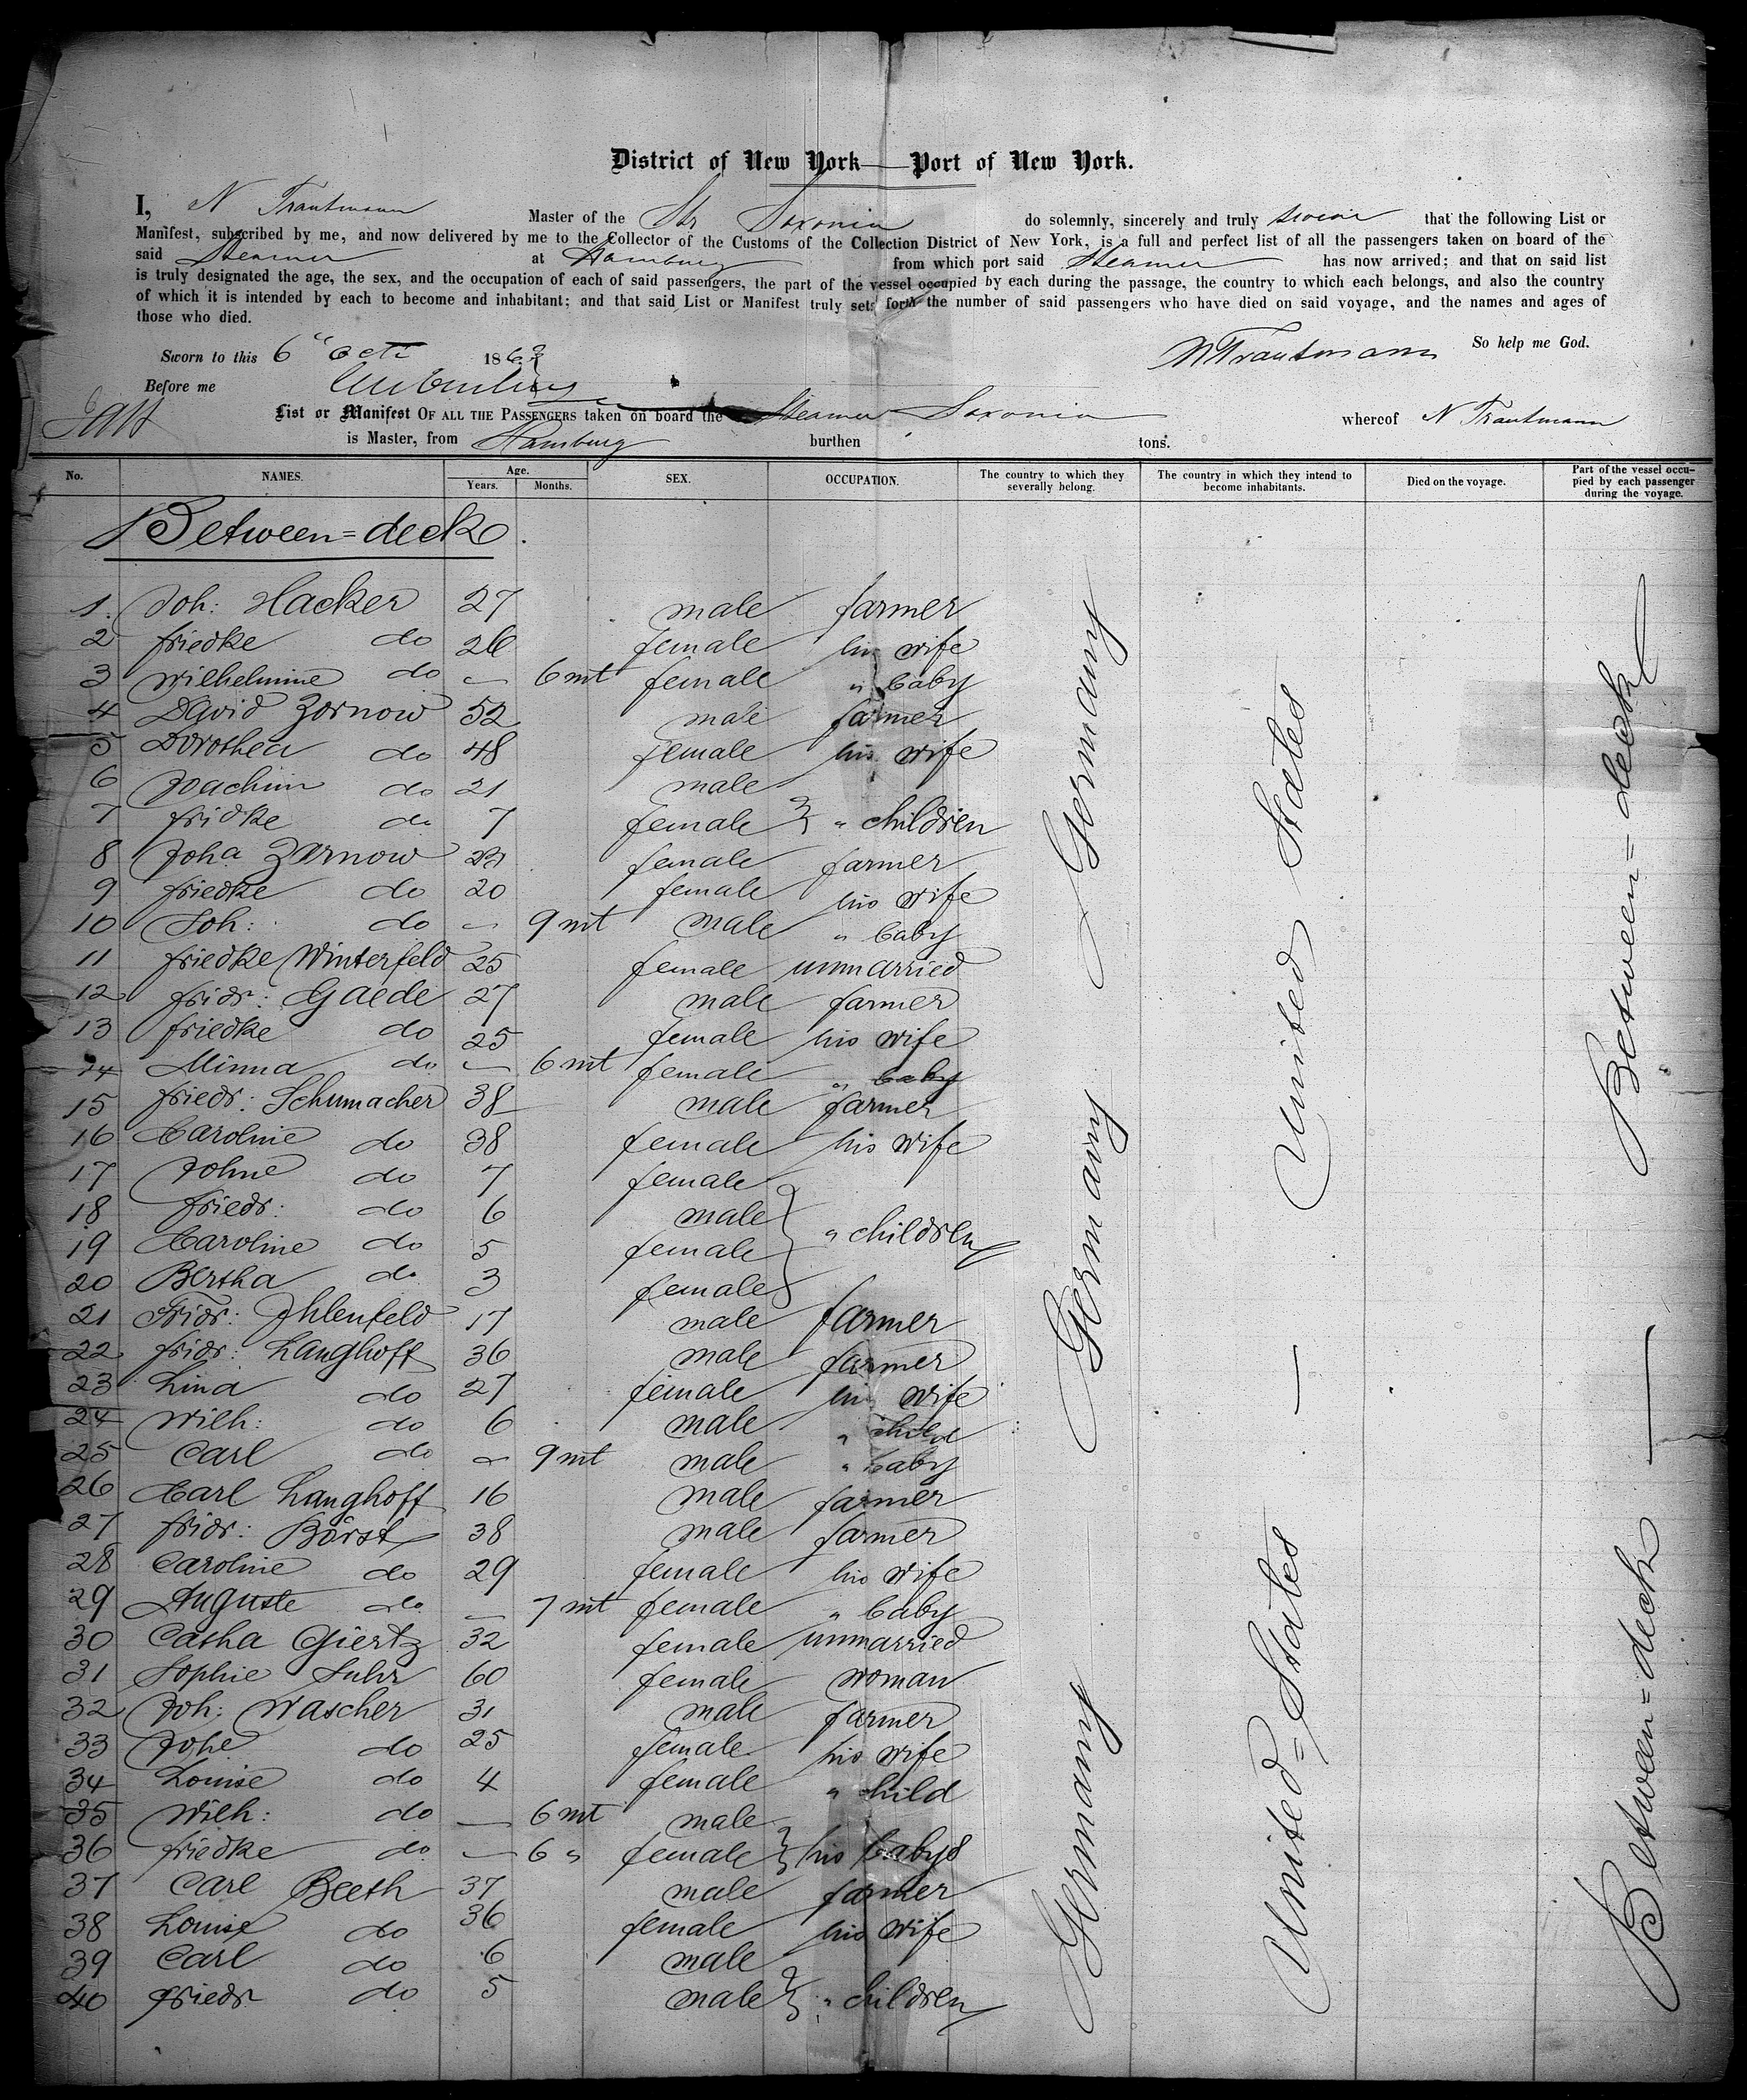 District of New York—Port of New York.
I, N Trautmann Master of the Str Saxonia do solemnly, sincerely and truly swear that the following List or
Manifest, subscribed by me, and now delivered by me to the Collector of the Customs of the Collection District of New York, is a full and perfect list of all the passengers taken on board of the
said Steamer at Hamburg from which port said Steamer has now arrived; and that on said list
is truly designated the age, the sex, and the occupation of each of said passengers, the part of the vessel occupied by each during the passage, the country to which each belongs, and also the country
of which it is intended by each to become and inhabitant; and that said List or Manifest truly sets forth the number of said passengers who have died on said voyage, and the names and ages of
those who died.
So help me God.
Sworn to this 6" Oct 186 NTrautmann
Before me
List or Manifest OF ALL THE PASSENGERS taken on board the Steamer Saxonia whereof N Trautmann
is Master, from Hamburg burthen tons.
No. NAMES. Age. Years. Months. SEX. OCCUPATION. The country to which they severally belong. The country in which they intend to become inhabitants. Died on the voyage. Part of the vessel occupied by each passenger during the voyage.
Between=deck.
1. Joh: Hacker 27 male farmer
2 friedke do 26 female his wife
3 Wilhelmine do — 6 mt female " baby
4 David Zornow 52 male farmer
5 Dorothea do 48 female his wife
6 Joachim do 21 male
7 fridke do 7 female } " children
8 Joha Zarnow female farmer
9 friedke do 20 female his wife
10 Joh: do — 9 mt male " baby
11 friedke Winterfeld 25 female unmarried
12 fridr: Gaede 27 male farmer
13 friedke do 25 female his wife
14 Minna do — 6 mt female " baby
15 friedr: Schumacher 38 male farmer
16 Caroline do 38 female his wife
17 Johne do 7 female
18 friedr: do 6 male
19 Caroline do 5 female } " children
20 Bertha do 3 female
21 Fridr: Ihlenfeld 17 male farmer
22 fridr: Langhoff 36 male farmer
23 Lina do 27 female his wife
24 Wilh: do 6 male " child
25 Carl do — 9 mt male " baby
26 Carl Langhoff 16 male farmer
27 fridr: Börst 38 male farmer
28 Caroline do 29 female his wife
29 Auguste do — 7 mt female " baby
30 Catha Giertz 32 female unmarried
31 Sophie Suhr 60 female woman
32 Joh: Wascher 31 male farmer
33 Johe do 25 female his wife
34 Louise do 4 female " child
35 Wilh: do — 6 mt male
36 friedke do — 6 " female } his babys
37 Carl Beeth 37 male farmer
38 Louise do 36 female his wife
39 Carl do 6 male
40 friedr do 5 male } " children
Germany Germany Germany
United States — United=States
Between=deck — Between=deck